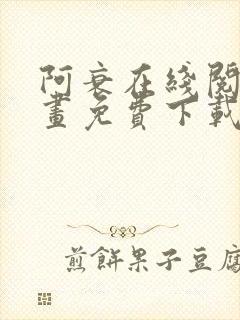 阿衰在綫閱
畫免費下載
煎餅果子豆腐